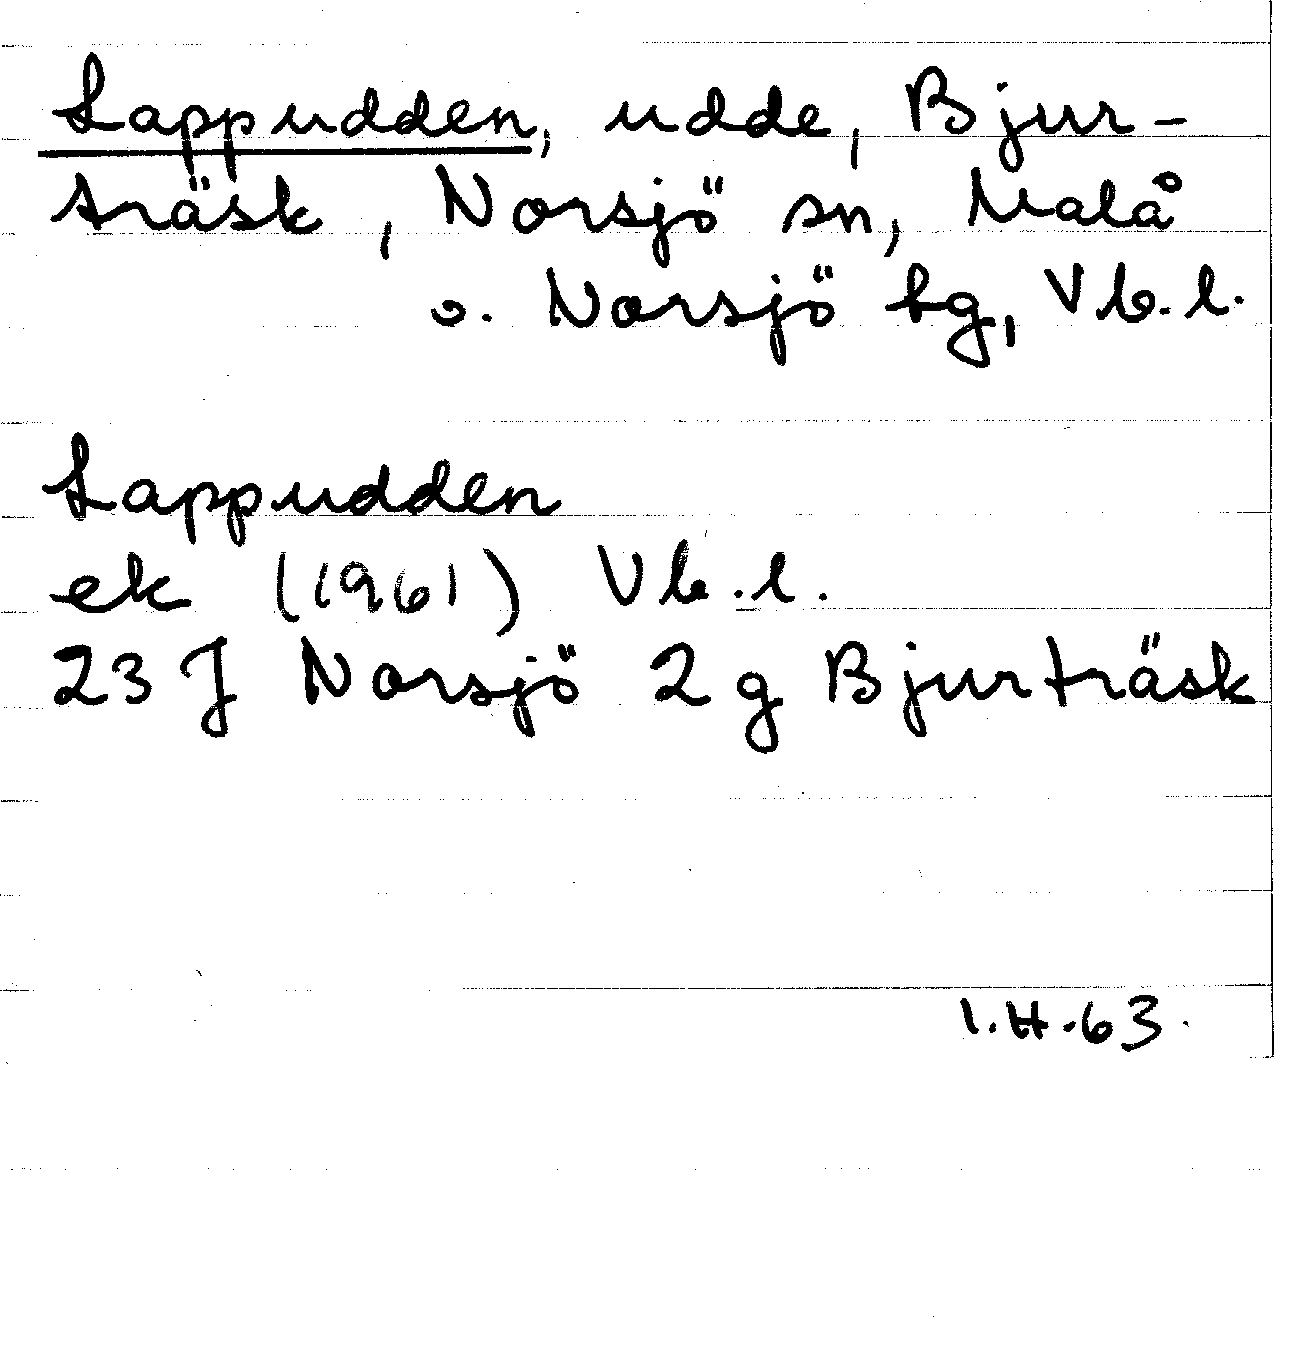 Lappudden, udde, Bjur-
träsk, Norsjö sn, Malå
o. Norsjö tg, Vb.l.
Lappudden
ek (1961) Vb.l.
23 J Norsjö 2 g Bjurträsk
I.H.63.